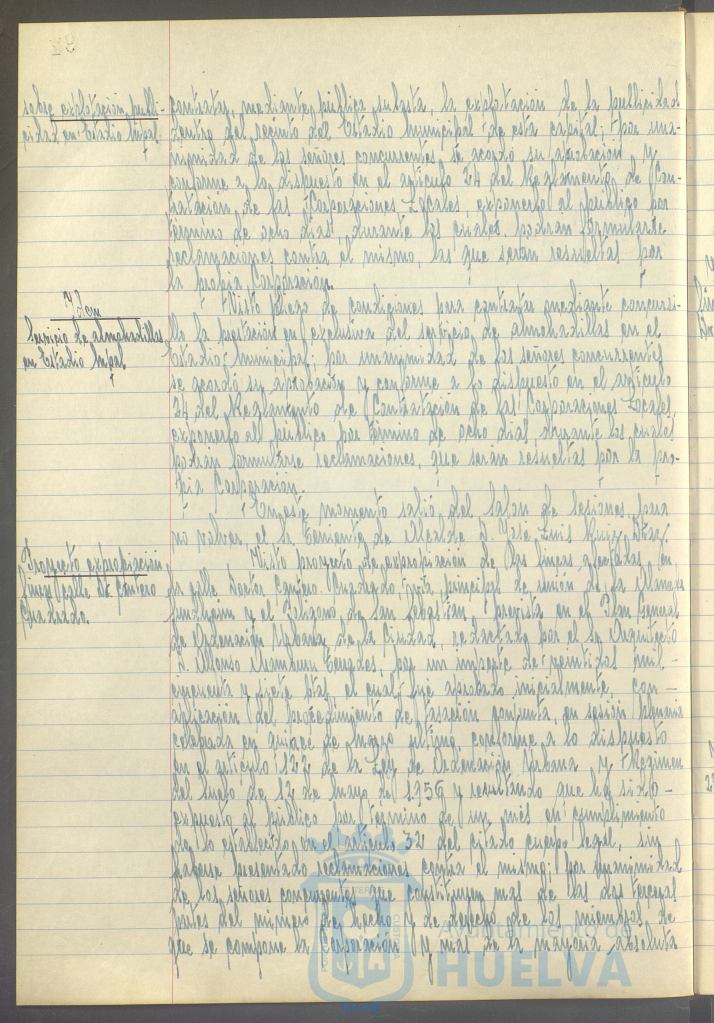 sobre explotación publi-
cidad en Estadio Mpal.
contratar, mediante pública subasta, la explotación de la publicidad
dentro del recinto del Estadio Municipal de esta capital; por una-
nimidad de los señores concurrentes se acordó su aprobación y
conforme a lo dispuesto en el artículo 24 del Reglamento de Con-
tratación de las Corporaciones Locales, exponerlo al público por
término de ocho días, durante los cuales podrán formularse
reclamaciones contra el mismo, las que serán resueltas por
la propia Corporación.
Idem
Servicio de almohadillas
en Estadio Mpal.
Visto pliego de condiciones para contratar mediante concursi-
llo la prestación en exclusiva del servicio de almohadillas en el
Estadio Municipal; por unanimidad de los señores concurrentes
se acordó su aprobación y conforme a lo dispuesto en el artículo
24 del Reglamento de Contratación de las Corporaciones Locales,
exponerlo al público por término de ocho días durante los cuales
podrán formularse reclamaciones, que serán resueltas por la pro-
pia Corporación.
En este momento salió del Salón de sesiones, para
no volver, el Sr. Teniente de Alcalde D. José Luis Ruiz Díaz.
Proyecto expropiación
fincas calle Dr. Cantero
Cuadrado.
Visto proyecto de expropiación de las fincas afectadas en
la calle Doctor Cantero Cuadrado, vía principal de unión de la Alameda
Sundheim y el Polígono de San Sebastián prevista en el Plan General
de Ordenación Urbana de la Ciudad, redactado por el Sr. Arquitecto
D. Alfonso por un importe de veintidós mil
cincuenta y siete ptas. el cual fué aprobado inicialmente, con
aplicación del procedimiento de tasación conjunta, en sesión plenaria
celebrada en quince de marzo último, conforme a lo dispuesto
en el artículo 122 de la Ley de Ordenación Urbana y Régimen
del Suelo de 12 de mayo de 1.956 y resultando que ha sido
expuesto al público por término de un mes en cumplimiento
de lo establecido en el artículo 32 del citado cuerpo legal, sin
haberse presentado reclamaciones contra el mismo; por unanimidad
de los señores concurrentes que constituyen más de las dos terceras
partes del número de hecho y de derecho de los miembros de
que se compone la Corporación y más de la mayoría absoluta
Ayuntamiento de
HUELVA